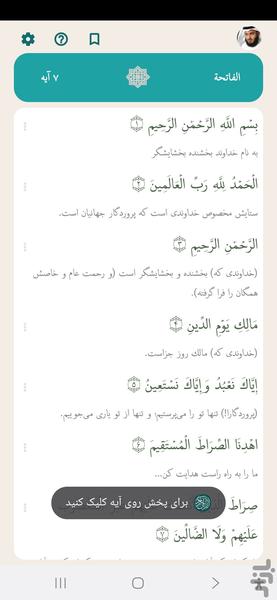 الفاتحة
۷ آیه
بِسْمِ اللَّهِ الرَّحْمَٰنِ الرَّحِيمِ ﴿۱﴾
به نام خداوند بخشنده بخشایشگر
الْحَمْدُ لِلَّهِ رَبِّ الْعَالَمِينَ ﴿۲﴾
ستایش مخصوص خداوندی است که پروردگار جهانیان است.
الرَّحْمَٰنِ الرَّحِيمِ ﴿۳﴾
(خداوندی که) بخشنده و بخشایشگر است (و رحمت عام و خاصش
همگان را فرا گرفته).
مَالِكِ يَوْمِ الدِّينِ ﴿۴﴾
(خداوندی که) مالک روز جزاست.
إِيَّاكَ نَعْبُدُ وَإِيَّاكَ نَسْتَعِينُ ﴿۵﴾
(پروردگارا!) تنها تو را می‌پرستیم؛ و تنها از تو یاری می‌جوییم.
اهْدِنَا الصِّرَاطَ الْمُسْتَقِيمَ ﴿۶﴾
ما را به راه راست هدایت کن...
صِرَاطَ
برای پخش روی آیه کلیک کنید
عَلَيْهِمْ وَلَا الضَّالِّينَ ﴿۷﴾
بازار